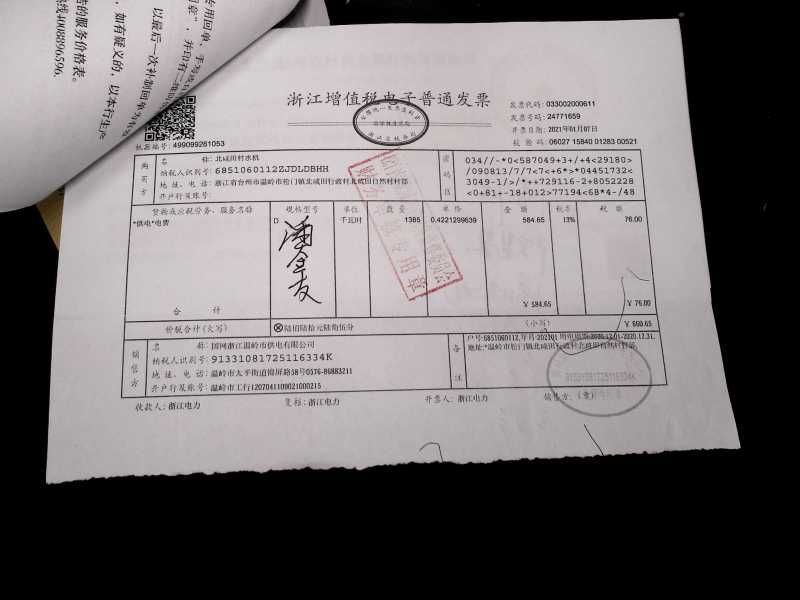 专用回单，手写
同章"，并印有二维
以最后一次补制回单为
，如有疑义的，以本行生产
的服务价格表。
热线4008896596.
浙江增值税电子普通发票
发票代码: 033002000611
发票号码: 24771659
开票日期: 2021年01月07日
校 验 码: 06027 15840 01283 00521
机器编号: 499099261053
购买方
名 称: 北咸田村水机
纳税人识别号: 6851060112ZJDLDBHH
地 址、电 话: 浙江省台州市温岭市松门镇北咸田行政村北咸田自然村村部
开户行及账号:
密码区
034//-*0<587049+3+/+4<29180>
/090813/7/7<7<+6>>*04451732>
3049-1/>/*++729116-2+8052228
<0+81+-18+012>77194<68*4-/48
货物或应税劳务、服务名称 规格型号 单位 数 量 单 价 金 额 税率 税 额
*供电*电费 D 千瓦时 1385 0.4221299639 584.65 13% 76.00
合 计 ¥ 584.65 ¥ 76.00
价税合计(大写) ⊗陆佰陆拾元陆角伍分 (小写) ¥ 660.65
销售方
名 称: 国网浙江温岭市供电有限公司
纳税人识别号: 91331081725116334K
地 址、电 话: 温岭市太平街道锦屏路58号0576-86883211
开户行及账号: 温岭市工行1207041109021000215
备注
户号:6851060112,年月:202101,周电周期:2020.12.01-2020.12.31,
地址:*温岭市松门镇北咸田自然村村部
91331081725116334K
收款人: 浙江电力 复核: 浙江电力 开票人: 浙江电力 销售方: (章)